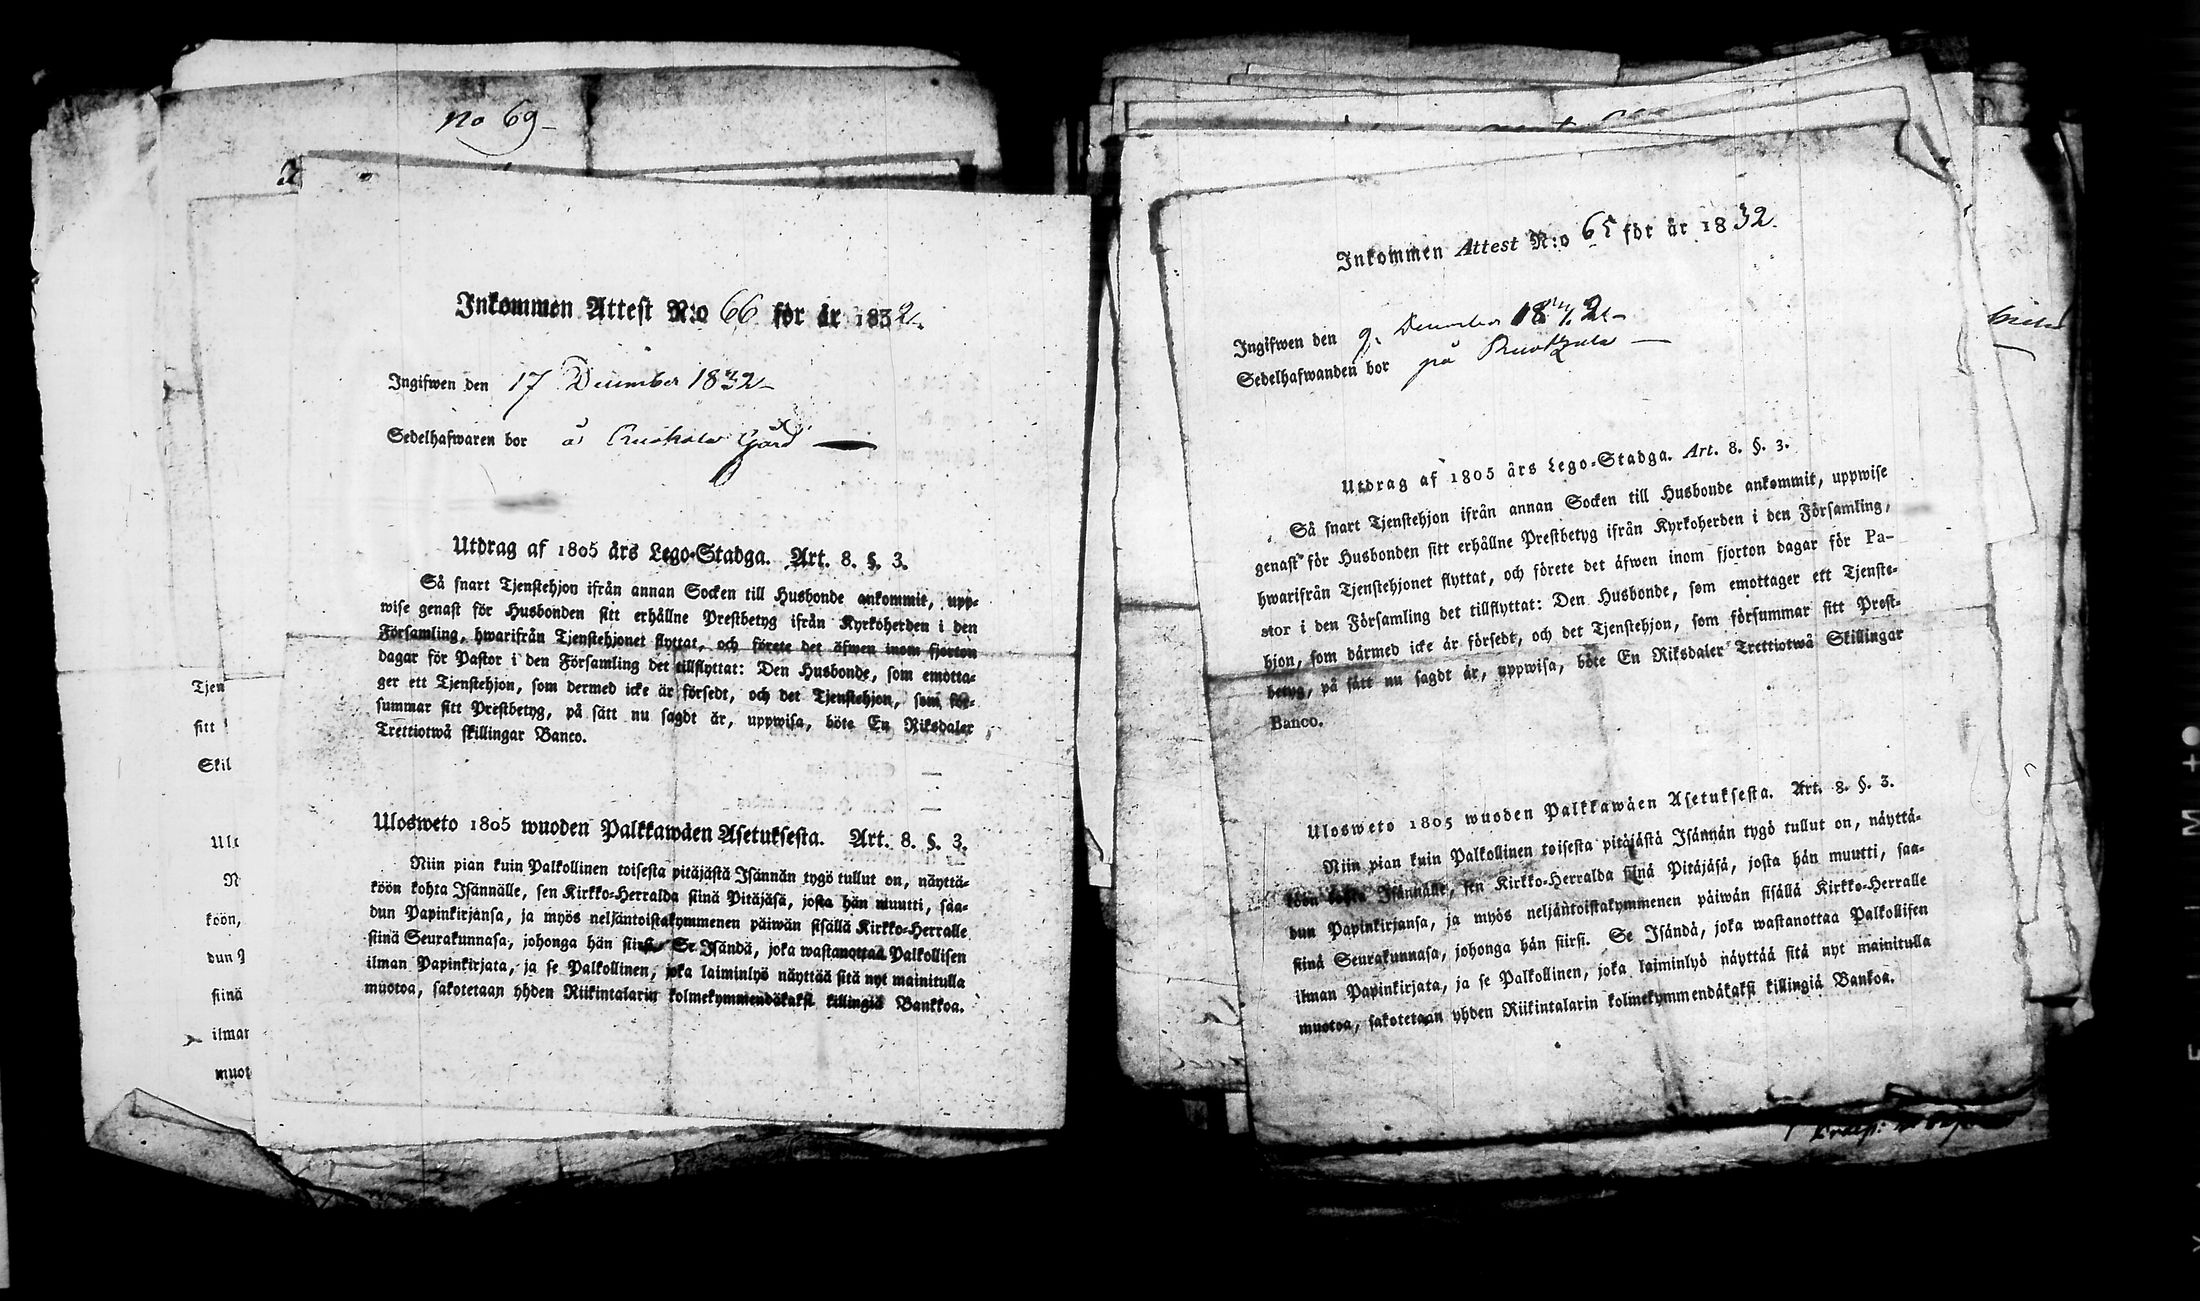 No 69
Inkommen Attest N:o 66 för år 1832
Ingifwen den 17 December 1832
Sedelhafwaren bor å Gård
Utdrag af 1805 års Lego-Stadga. Art. 8. §. 3.
Så snart Tjenstehjon ifrån annan Socken till Husbonde ankommit, upp-
wise genast för Husbonden sitt erhållne Prestbetyg ifrån Kyrkoherden i den
Församling, hwarifrån Tjenstehjonet flyttat, och förete det äfwen inom fjorton
dagar för Pastor i den Församling det tillflyttat: Den Husbonde, som emotta-
ger ett Tjenstehjon, som dermed icke är försedt, och det Tjenstehjon, som för-
summar sitt Prestbetyg, på sätt nu sagdt är, uppwisa, böte En Riksdaler
Trettiotwå skillingar Banco.
Ulosweto 1805 wuoden Palkkawäen Asetuksesta. Art. 8. §. 3.
Niin pian kuin Palkollinen toisesta pitäjästä Isännän tygö tullut on, näyttä-
köön kohta Isännälle, sen Kirkko-Herralda siinä Pitäjäsä, josta hän muutti, saa-
dun Papinkirjansa, ja myös neljäntoistakymmenen päiwän sisällä Kirkko-Herralle
siinä Seurakunnasa, johonga hän siirsi. Se Isändä, joka wastanottaa Palkollisen
ilman Papinkirjata, ja se Palkollinen, joka laiminlyö näyttää sitä nyt mainitulla
muotoa, sakotetaan yhden Riikintalarin kolmekymmendäkaksi killingiä Bankkoa.
Tjen
sitt
Skil
Ulo
N
köön,
dun P
siinä
ilman
muot
Inkommen Attest N:o 65 för år 1832.
Ingifwen den 9. December 1832
Sedelhafwanden bor på
Utdrag af 1805 års Lego-Stadga. Art. 8. §. 3.
Så snart Tjenstehjon ifrån annan Socken till Husbonde ankommit, uppwise
genast för Husbonden sitt erhållne Prestbetyg ifrån Kyrkoherden i den Församling,
hwarifrån Tjenstehjonet flyttat, och förete det äfwen inom fjorton dagar för Pa-
stor i den Församling det tillflyttat: Den Husbonde, som emottager ett Tjenste-
hjon, som därmed icke är försedt, och det Tjenstehjon, som försummar sitt Prest-
betyg, på sätt nu sagdt är, uppwisa, böte En Riksdaler Trettiotwå Skillingar
Banco.
Ulosweto 1805 wuoden Palkkawäen Asetuksesta. Art. 8. §. 3.
Niin pian kuin Palkollinen toisesta pitäjästä Isännän tygö tullut on, näyttä-
köön kohta Isännälle, sen Kirkko-Herralda siinä Pitäjäsä, josta hän muutti, saa-
dun Papinkirjansa, ja myös neljäntoistakymmenen päiwän sisällä Kirkko-Herralle
siinä Seurakunnasa, johonga hän siirsi. Se Isändä, joka wastanottaa Palkollisen
ilman Papinkirjata, ja se Palkollinen, joka laiminlyö näyttää sitä nyt mainitulla
muotoa, sakotetaan yhden Riikintalarin kolmekymmendäkaksi killingiä Bankoa.